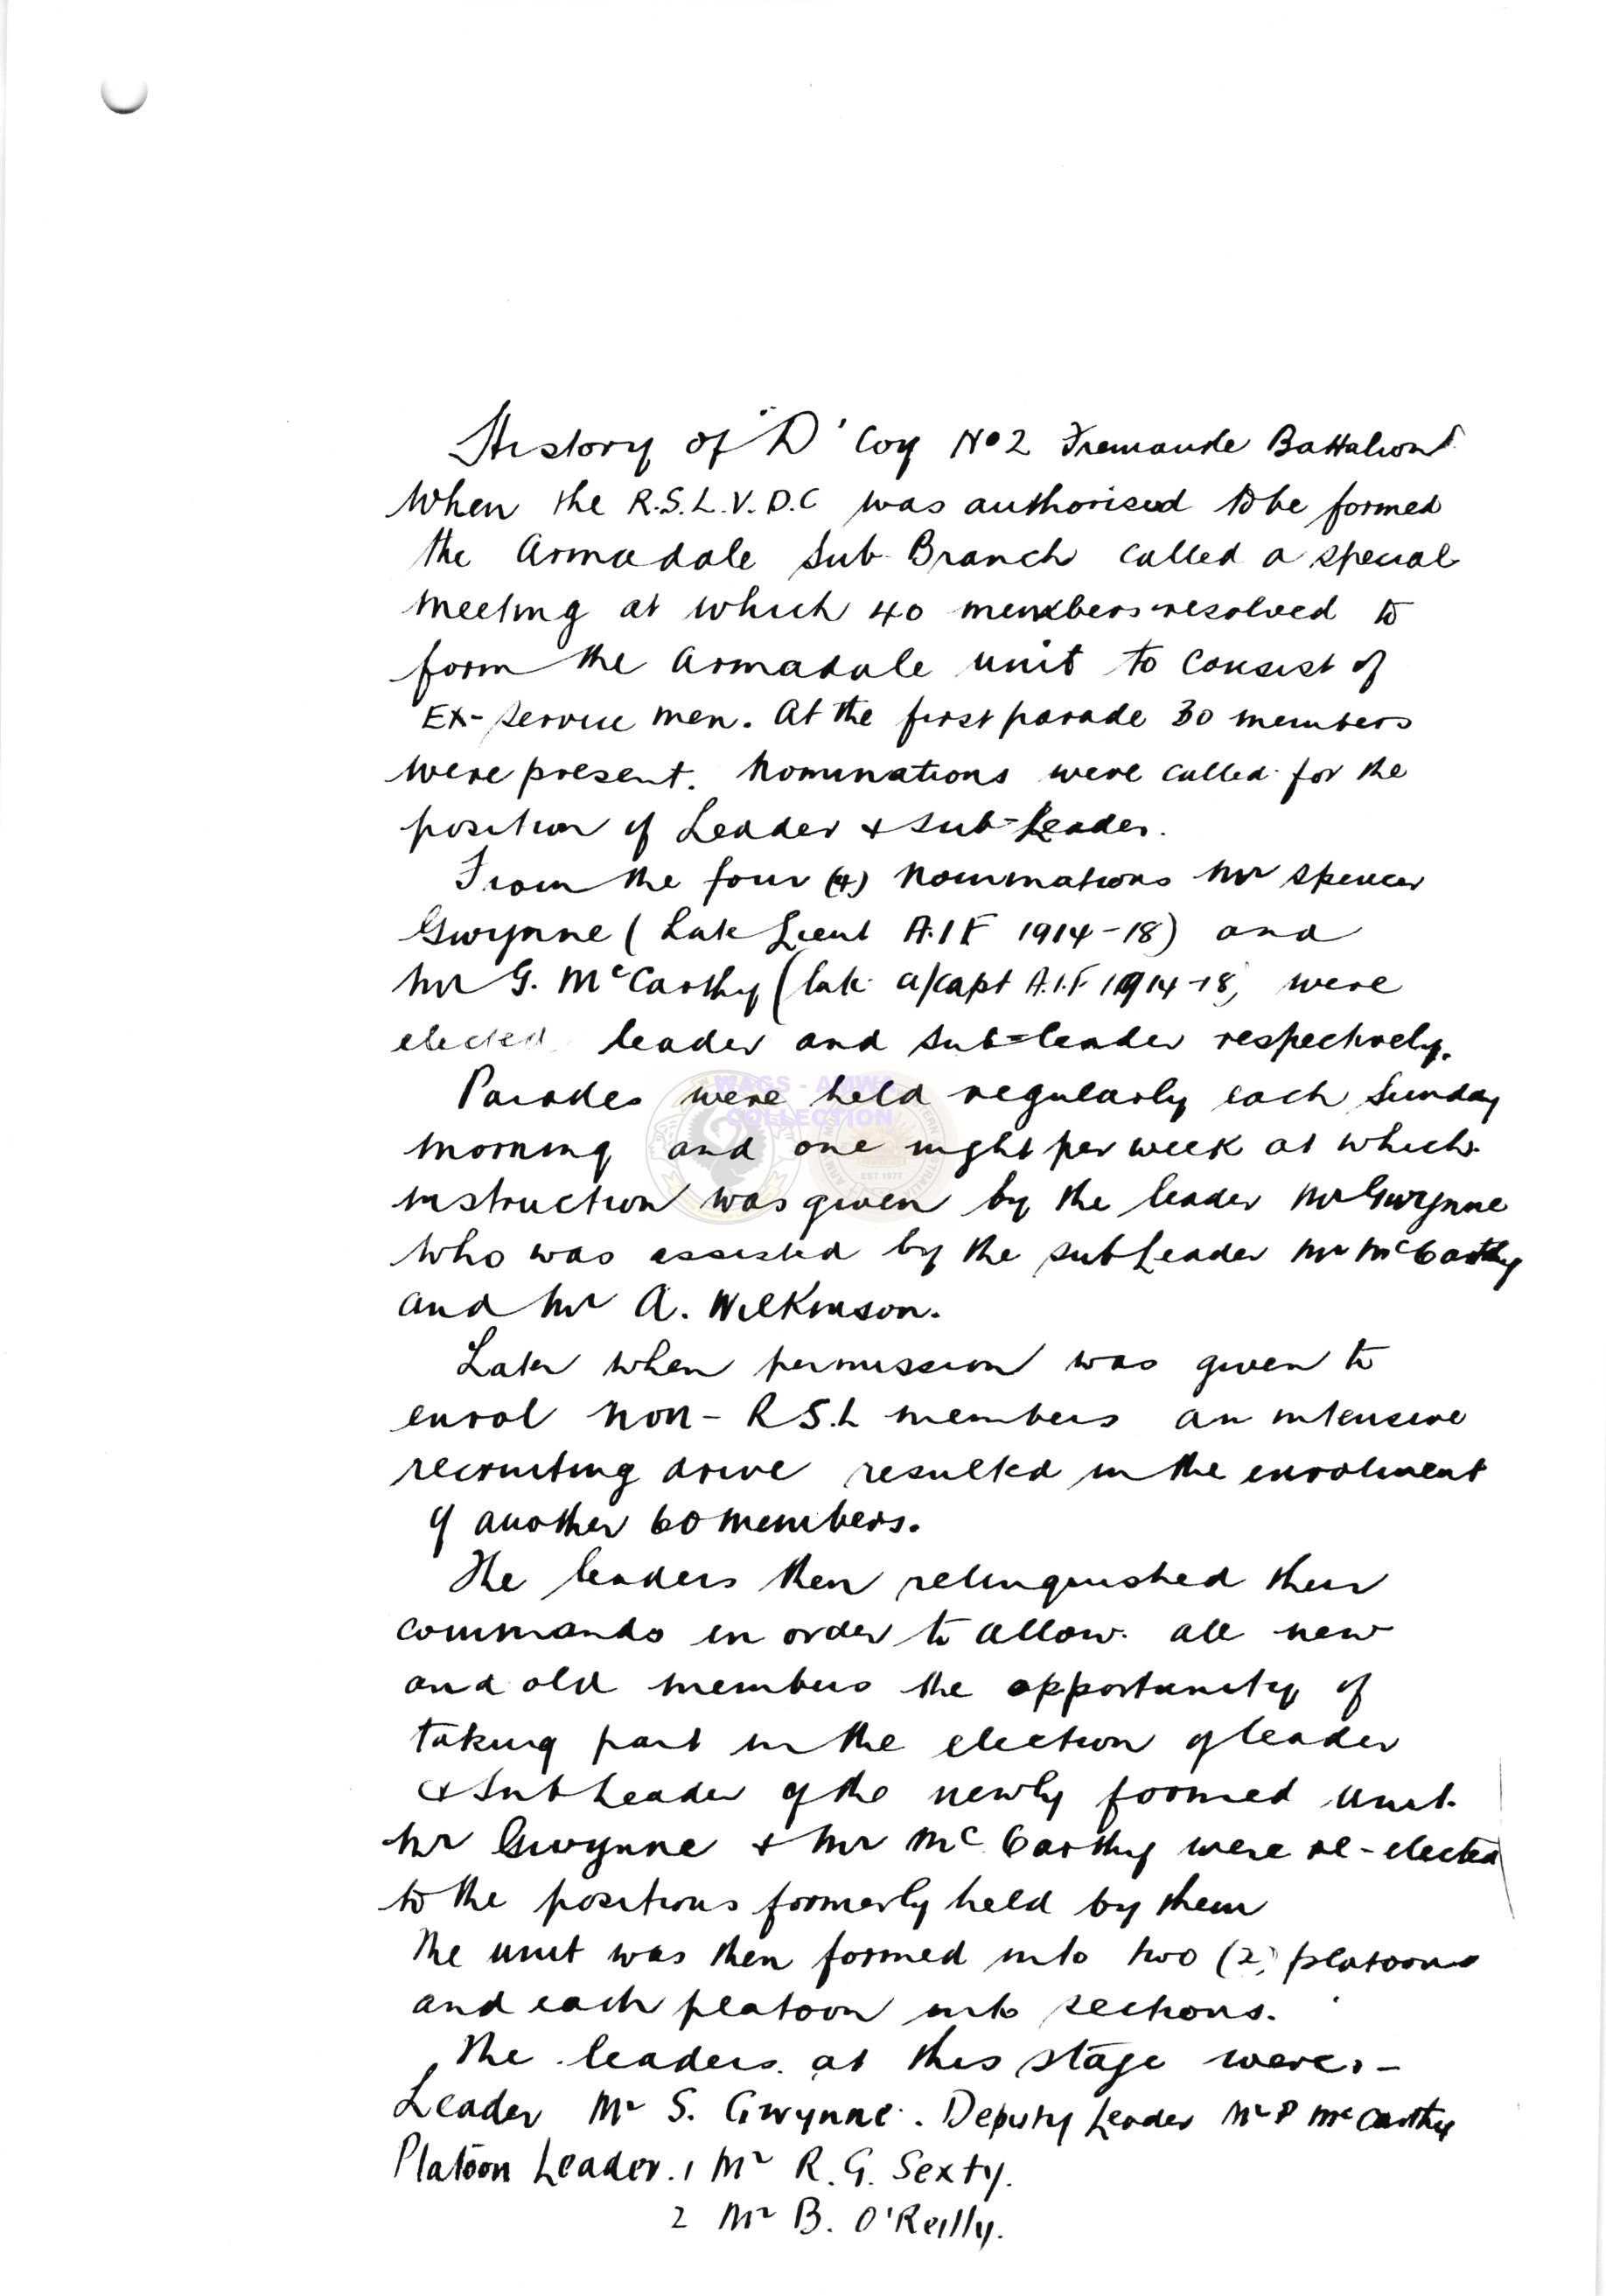 History of "D' Coy No 2 Fremantle Battalion
When the R.S.L.V.D.C was authorised to be formed
the Armadale Sub Branch called a special
meeting at which 40 members resolved to
form the Armadale unit to consist of
Ex-service men. At the first parade 30 members
were present. Nominations were called for the
position of Leader & sub-Leader.
From the four (4) nominations Mr Spencer
Gwynne (Late Lieut A.I F 1914-18) and
Mr G. McCarthy (late a/capt A.I.F 1914-18) were
elected leader and sub=leader respectively.
Parades were held regularly each Sunday
morning and one night per week at which
instruction was given by the leader Mr Gwynne
who was assisted by the subLeader Mr McCarthy
and Mr A. Wilkinson.
Later when permission was given to
enrol non-R S.L members an intensive
recruiting drive resulted in the enrolment
of another 60 members.
The leaders then relinquished their
commands in order to allow all new
and old members the opportunity of
taking part in the election of leader
& SubLeader of the newly formed unit.
Mr Gwynne & Mr McCarthy were re-elected
to the positions formerly held by them
The unit was then formed into two (2) platoons
and each platoon into sections.
The leaders at this stage were:-
Leader Mr S. Gwynne. Deputy Leader Mr P McCarthy
Platoon Leader. 1 Mr R. G. Sexty.
2 Mr B. O'Reilly.
WAGS - AMWA
COLLECTION
EST 1977